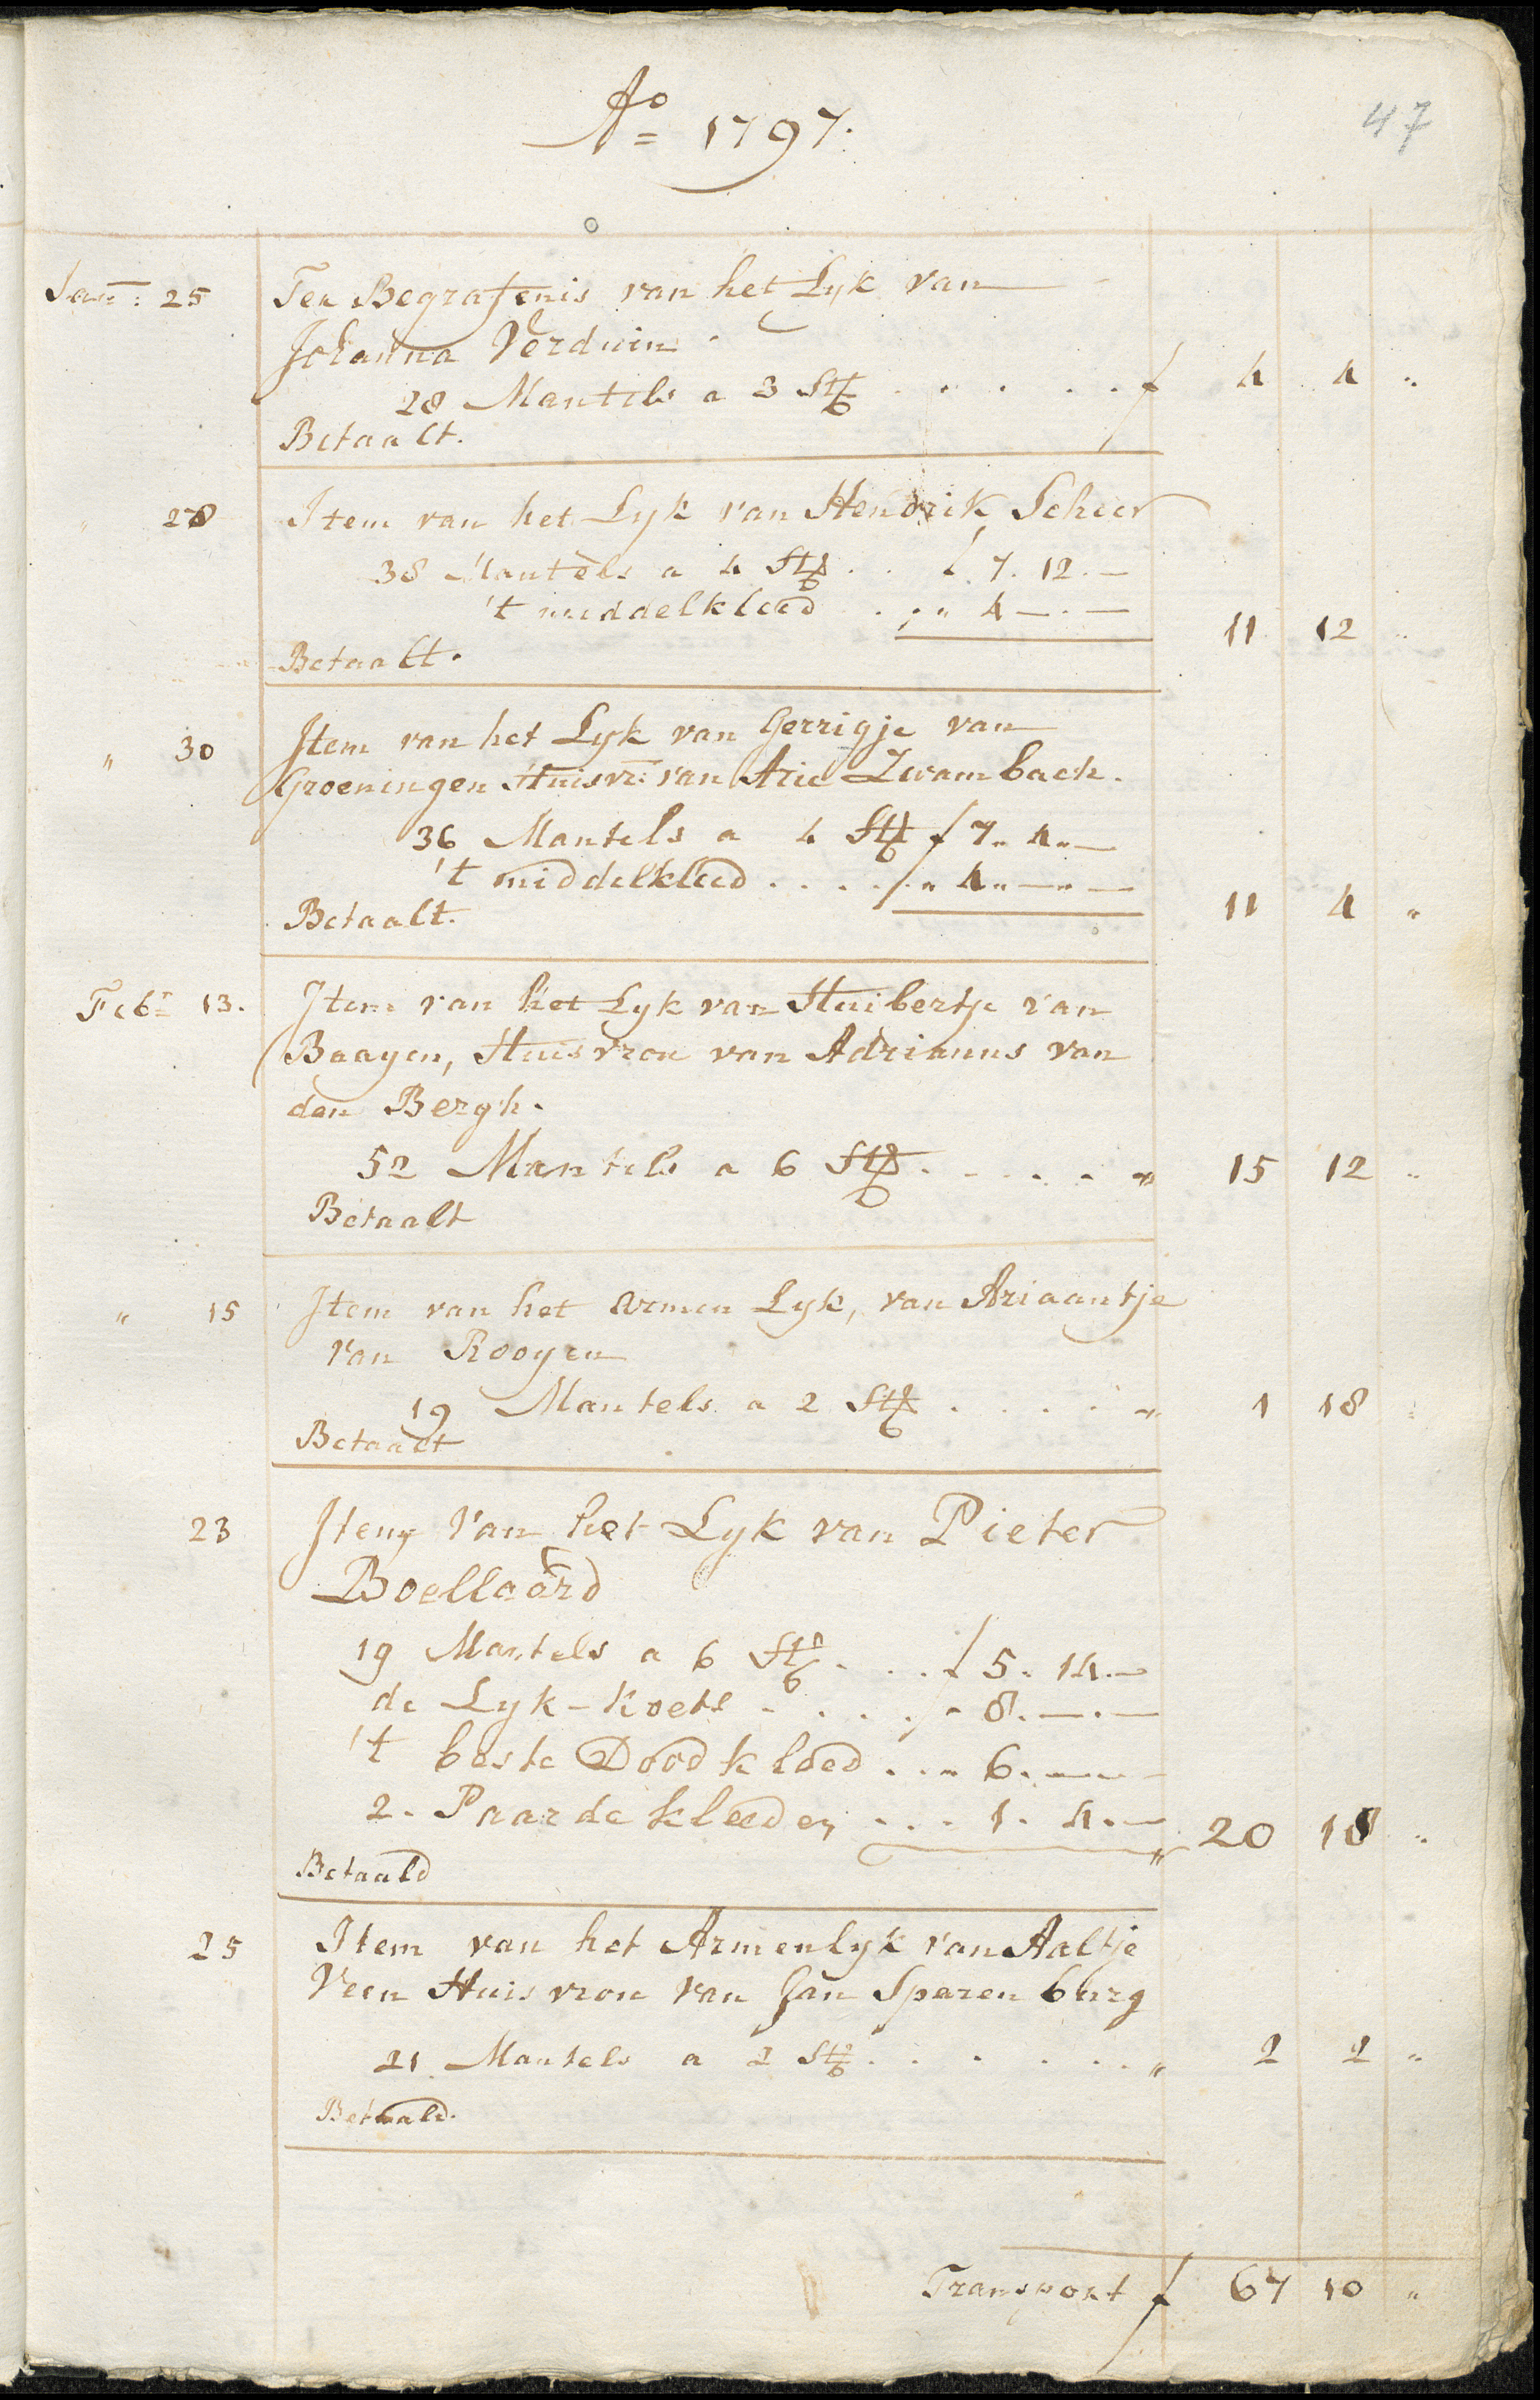 Ao 1797.
47
Jan: 25 Ter Begrafenis van het Lyk van
Johanna Verduin
28 Mantels a 3 Sts . . . . . f 4 4 "
Betaalt.
" 28 Item van het Lyk van Hendrik Scheer
38 Mantels a 4 Sts . . f 7. 12. —
't middelkleed . . " 4 — . —
11 12 "
Betaalt.
" 30 Item van het Lyk van Gerrigje van
Groeningen Huisvr: van Arie Zwambach.
36 Mantels a 4 Sts f 7 " 4 " —
't middelkleed . . . . " 4 " — " —
Betaalt. 11 4 "
Febr 13. Item van het Lyk van Huibertje van
Baayen, Huisvrou van Adrianus van
den Bergh.
52 Mantels a 6 Sts . . . . . " 15 12 "
Betaalt
" 15 Item van het armen Lyk, van Ariaantje
van Rooyen
19 Mantels a 2 Sts . . . . " 1 18 "
Betaalt
23 Item van het Lyk van Pieter
Boellaard
19 Mantels a 6 Sts . . . f 5. 14. —
de Lyk-koets . . . . " 8. — . —
't beste Doodkleed . . " 6. — . —
2. Paarde kleeden . . . 1. 4. —
" 20 18 "
Betaald
25 Item van het Armenlyk van Aaltje
Veen Huisvrou van Jan Sparenburg
21 Mantels a 2 Sts . . . . . . " 2 2 "
Betaald.
Transport f 67 10 "